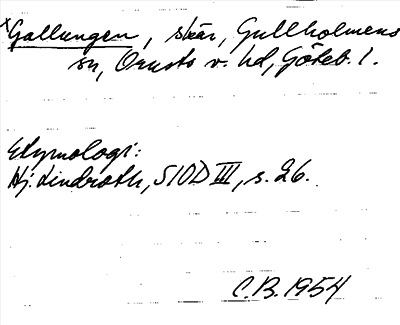 x Gallungen, skär, Gullholmens
sn, Orusts v. hd, Göteb. l.
Etymologi:
Hj. Lindroth, SIOD III, s. 26.
C.B. 1954